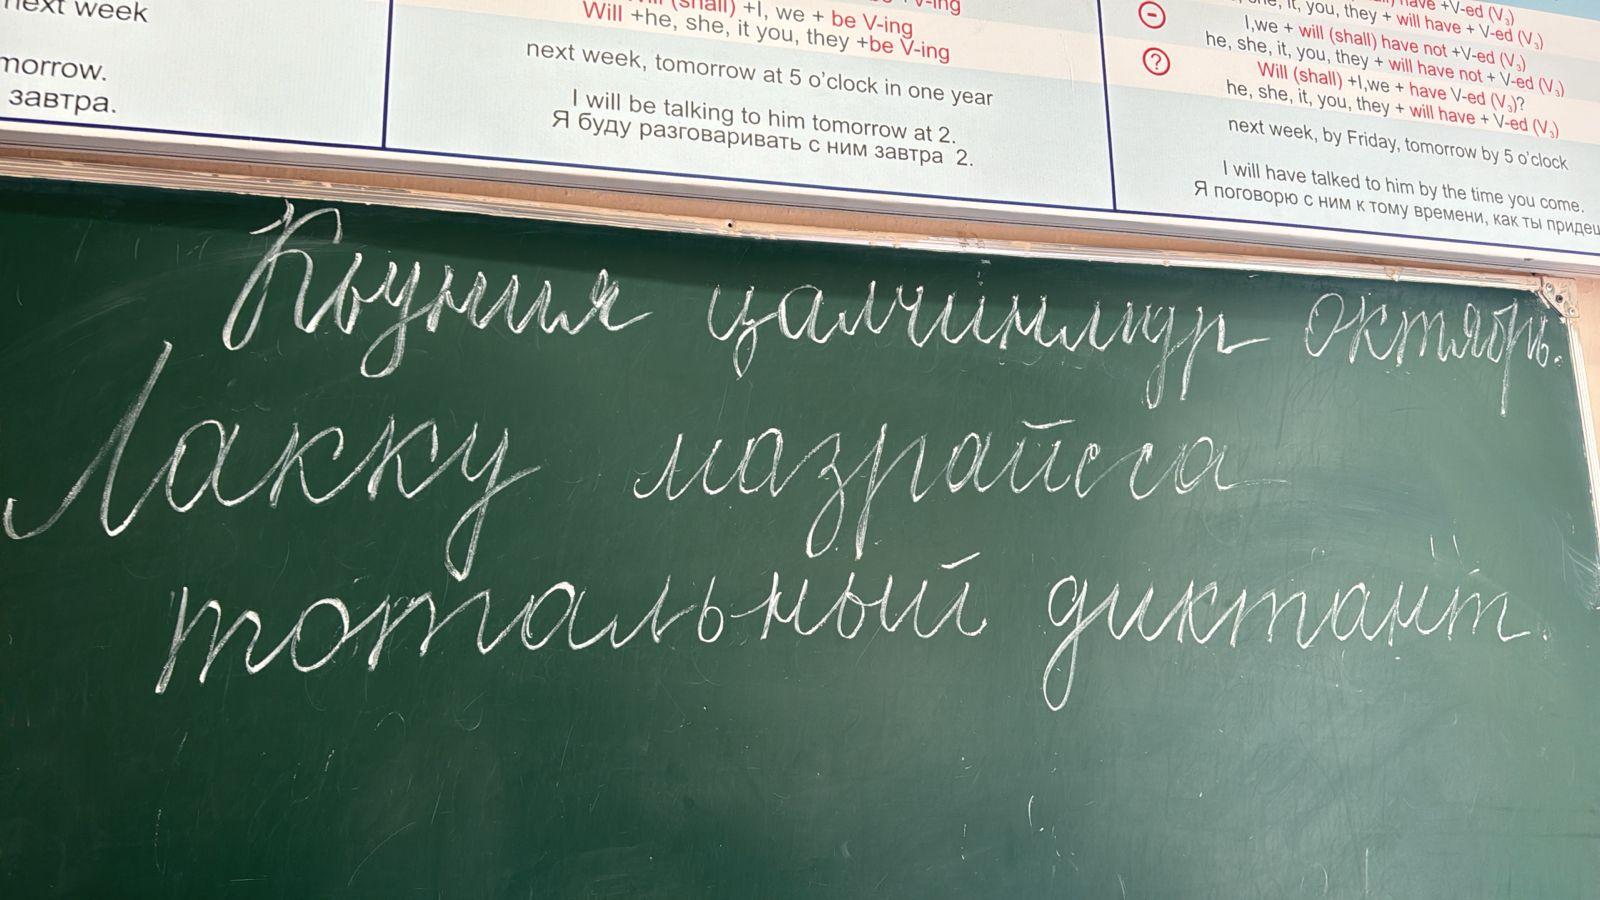 next week
morrow.
завтра.
(shall) +I, we + be V-ing
Will +he, she, it you, they +be V-ing
next week, tomorrow at 5 o'clock in one year
I will be talking to him tomorrow at 2.
Я буду разговаривать с ним завтра 2.
have +V-ed (V₃)
it, you, they + will have + V-ed (V₃)
I,we + will (shall) have not +V-ed (V₃)
he, she, it, you, they + will have not + V-ed (V₃)
Will (shall) +I,we + have V-ed (V₃)?
he, she, it, you, they + will have + V-ed (V₃)
next week, by Friday, tomorrow by 5 o'clock
I will have talked to him by the time you come.
Я поговорю с ним к тому времени, как ты
октябрь.
Лакку мазрайсса
тотальный диктант.